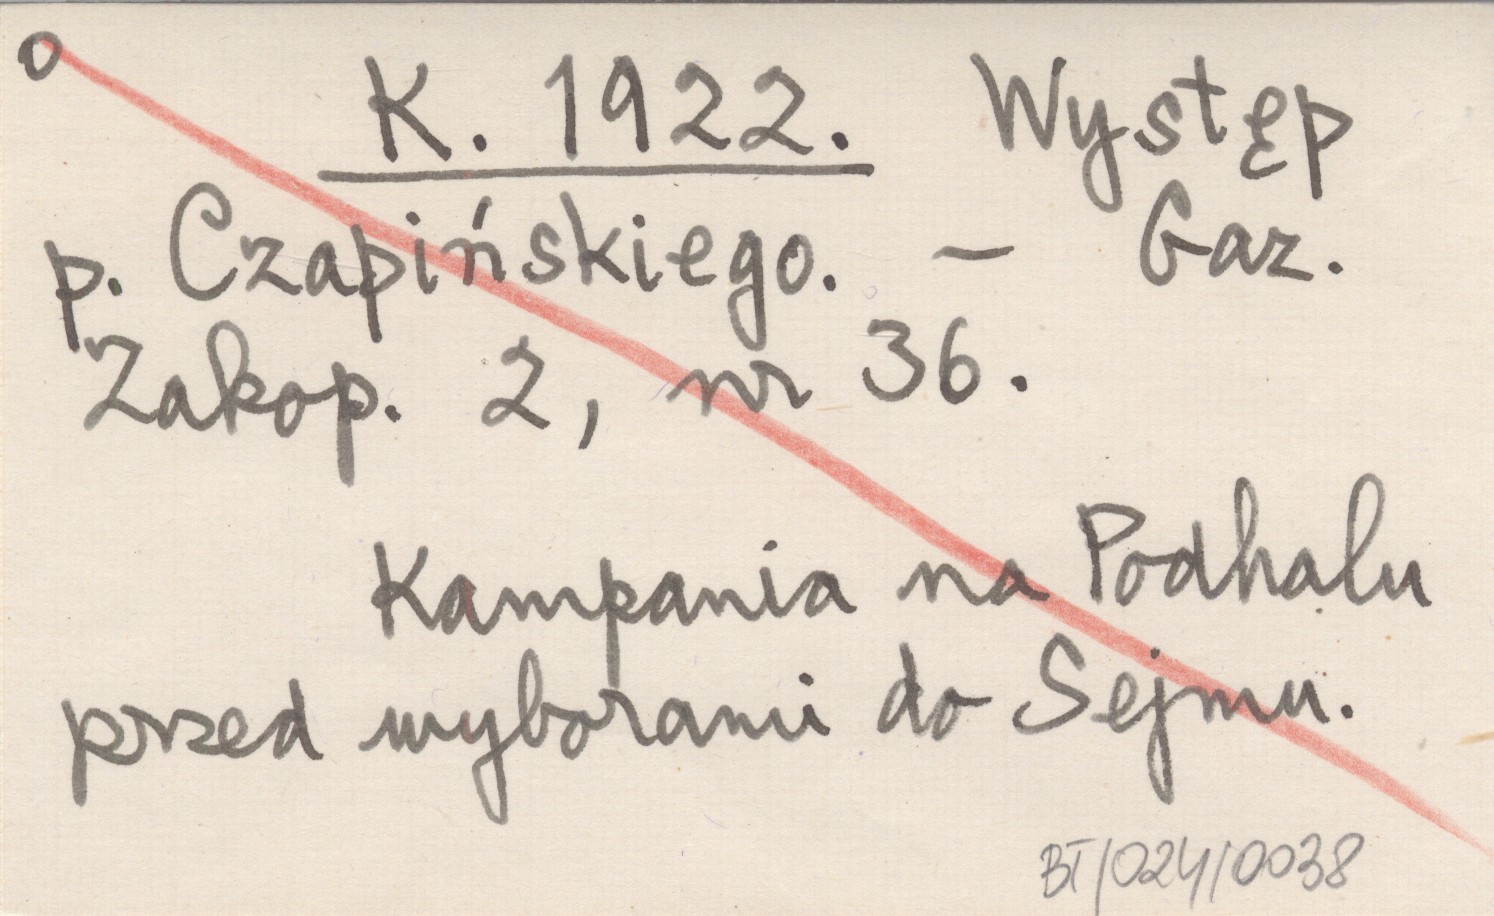 o
K. 1922. Występ
p. Czapińskiego. – Gaz.
Zakop. 2, nr 36.
Kampania na Podhalu
przed wyborami do Sejmu.
BT/024/0038